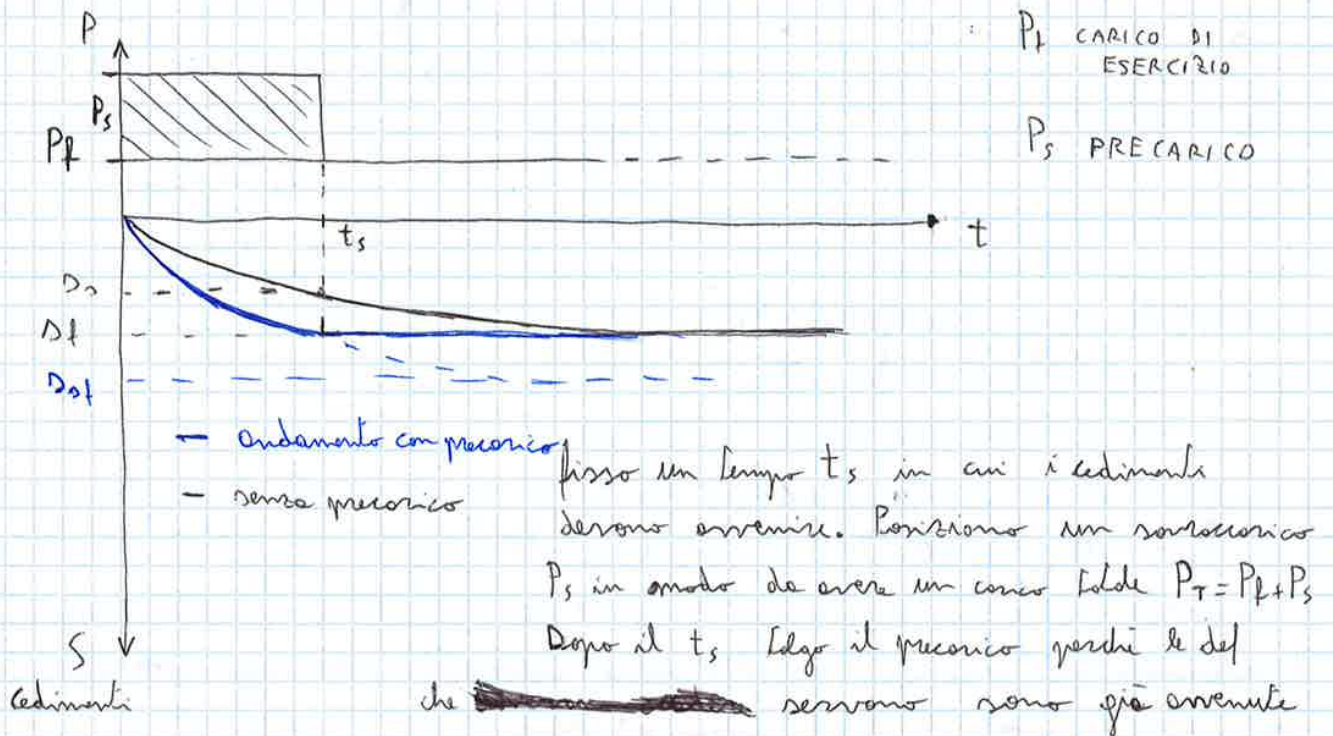 P
P_f CARICO DI
ESERCIZIO
P_s
P_f
P_s PRECARICO
t_s
t
D_s
D_f
D_sf
— andamento con precarico
— senza precarico
fisso un tempo t_s in cui i cedimenti
devono avvenire. Posiziono un sovraccarico
P_s in modo da avere un carico totale P_T = P_f + P_s
Dopo il t_s tolgo il precarico perché le def
che servono sono già avvenute
S
cedimenti